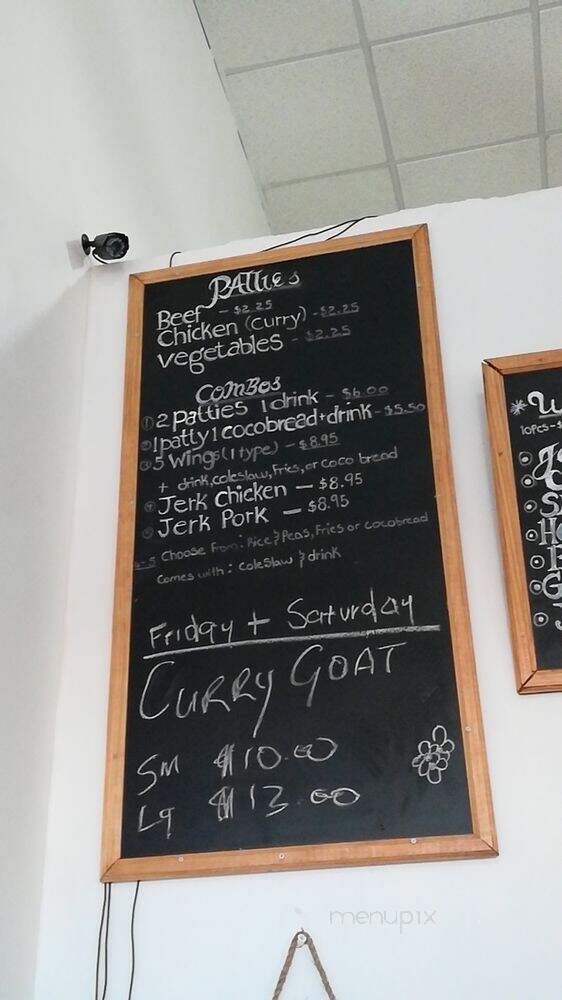 Patties
Beef - $2.25
Chicken (curry) - $2.25
vegetables - $2.25
Combos
① 2 patties 1 drink - $6.00
② 1 patty 1 cocobread + drink - $5.50
③ 5 wings (1 type) - $8.95
+ drink, coleslaw, fries, or coco bread
④ Jerk Chicken — $8.95
⑤ Jerk Pork — $8.95
4-5 Choose from: Rice & Peas, Fries or cocobread
comes with: coleslaw & drink
Friday + Saturday
CURRY GOAT
Sm $10.00
Lg $13.00
10pcs-
menupix